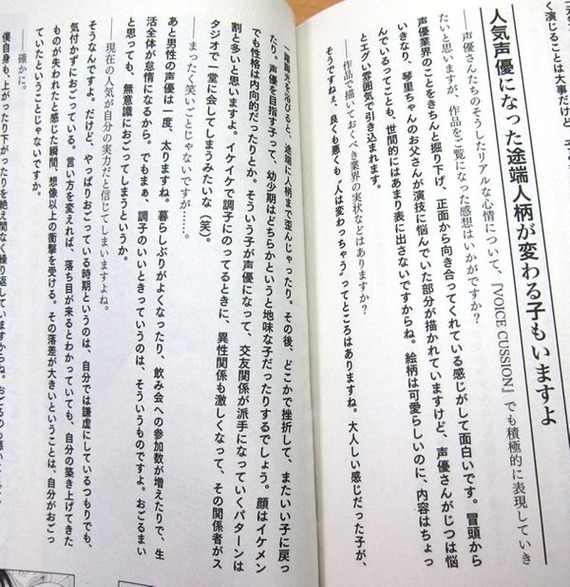 く演じることは大事だけど、
人気声優になった途端人柄が変わる子もいますよ
――声優さんたちのそうしたリアルな心情について、『VOICE CUSSION』でも積極的に表現していき
たいと思いますが、作品をご覧になった感想はいかがですか?
声優業界のことをきちんと掘り下げ、正面から向き合ってくれている感じがして面白いです。冒頭から
いきなり、琴里ちゃんのお父さんが演技に悩んでいた部分が描かれていますけど、声優さんがじつは悩
んでいるってことも、世間的にはあまり表に出さないですからね。絵柄は可愛らしいのに、内容はちょっ
とエグい雰囲気で引き込まれます。
――作品で描いておくべき業界の実状などはありますか?
そうですねぇ、良くも悪くも“人は変わっちゃう”ってところはありますね。大人しい感じだった子が、
一躍脚光を浴びると、途端に人柄まで歪んじゃったり。その後、どこかで挫折して、またいい子に戻っ
たり。声優を目指す子って、幼少期はどちらかというと地味な子だったりするでしょう。顔はイケメン
でも性格は内向的だったりとか。そういう子が声優になって、交友関係が派手になっていくパターンは
割と多いと思いますよ。イケイケで調子にのってるときに、異性関係も激しくなって、その関係者がス
タジオで一堂に会してしまうみたいな（笑）。
――まったく笑いごとじゃないですが……。
あと男性の声優は一度、太りますね。暮らしぶりがよくなったり、飲み会への参加数が増えたりで、生
活全体が怠惰になるから。でもまぁ、調子のいいときっていうのは、そういうものですよ。おごるまい
と思っても、無意識におごってしまうというか。
――現在の人気が自分の実力だと信じてしまいますよね。
そうなんですよ。だけど、やっぱりおごっている時期というのは、自分では謙虚にしているつもりでも、
気付かずにおごっている。言い方を変えれば、落ち目が来るとわかっていても、自分の築き上げてきた
ものが失われたと感じた瞬間、想像以上の衝撃を受ける。その落差が大きいということは、自分がおごっ
ていたということじゃないですか。
――確かに。
僕自身も、上がったり下がったりを絶え間なく繰り返していますからね。